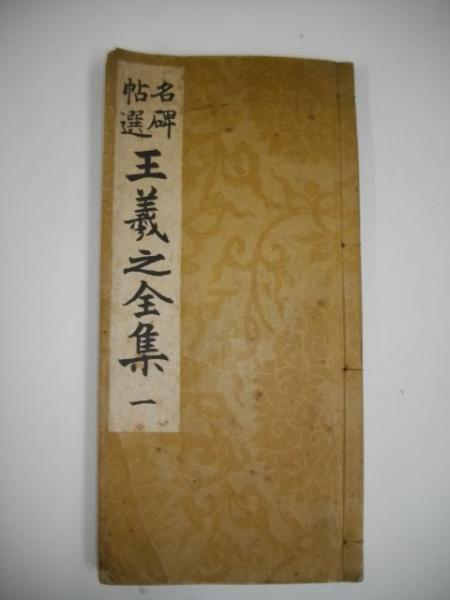 名碑
帖選
王羲之全集 一